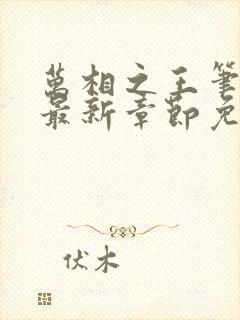 萬相之王筆
最新章節免
伏木